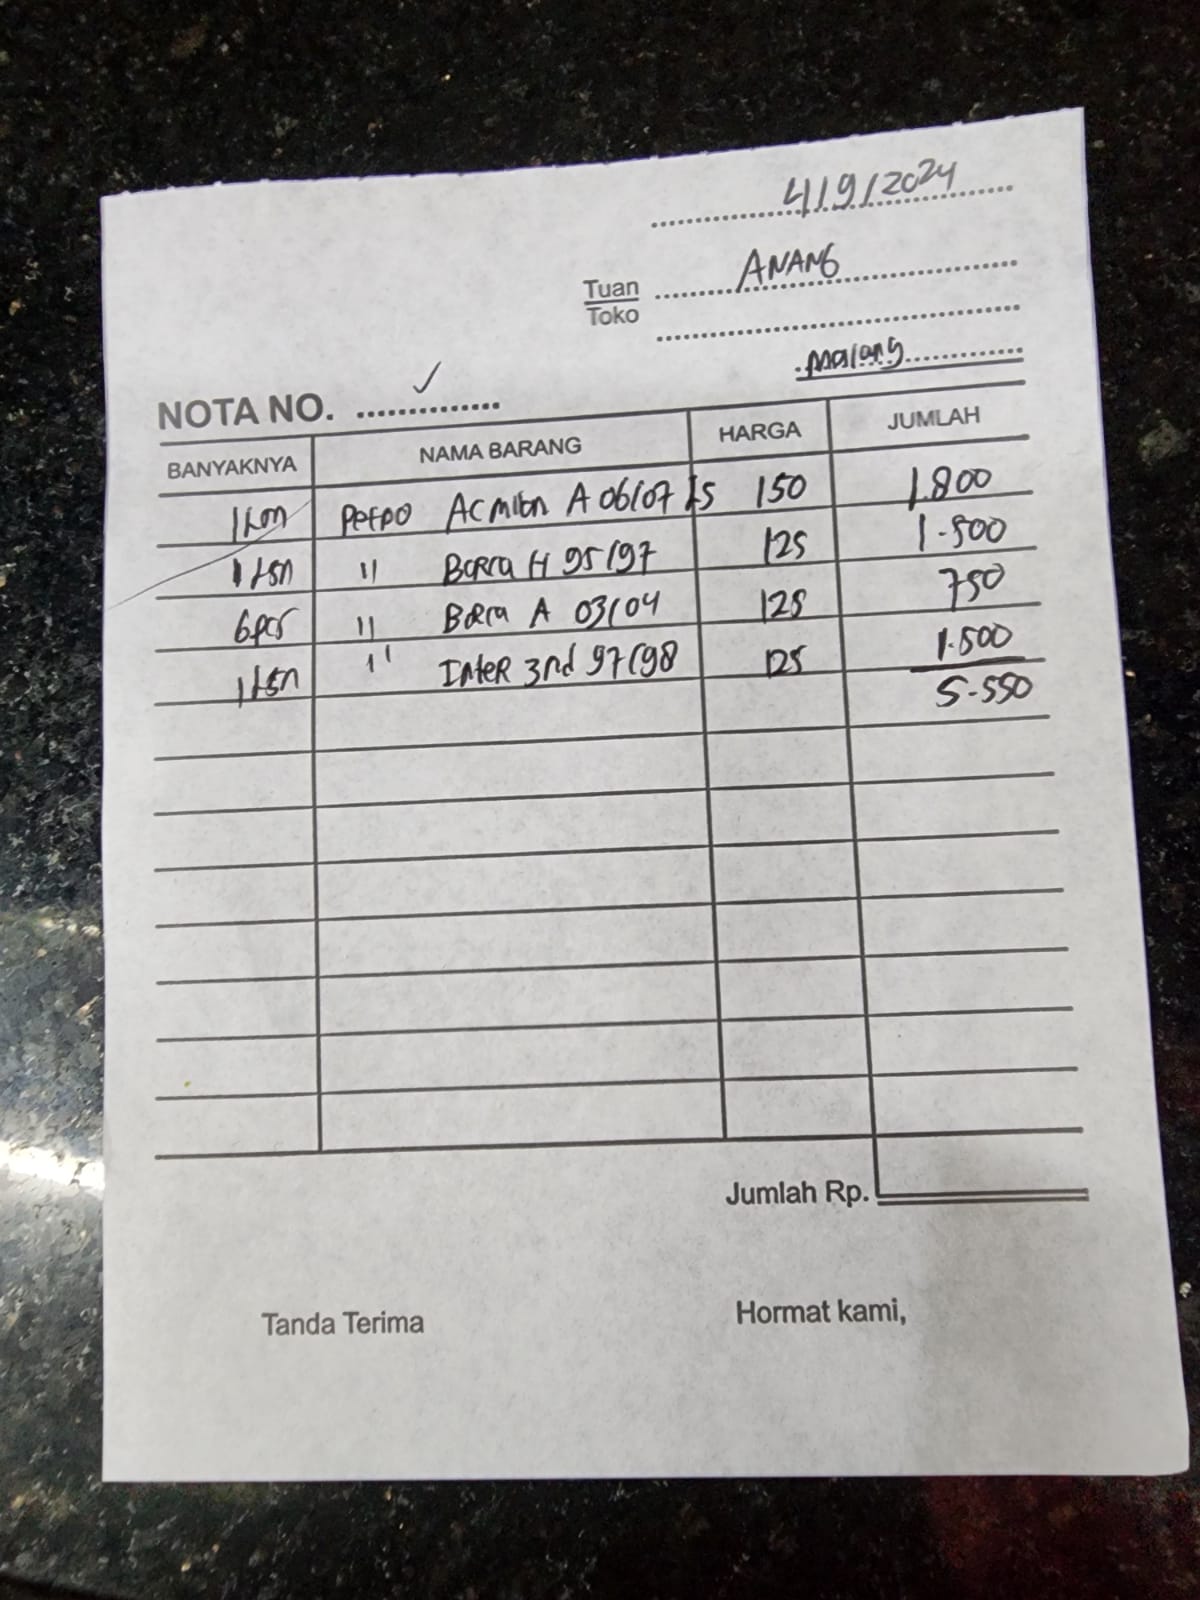 4/9/2024
Tuan ANANG
Toko
Malang
NOTA NO. ✓
BANYAKNYA NAMA BARANG HARGA JUMLAH
1 Lsn Retro AC Milan A 06/07 LS 150 1.800
1 Lsn " Barca H 95/97 125 1.500
6 pcs " Barca A 03/04 125 750
1 Lsn " Inter 3rd 97/98 125 1.500
5.550
Jumlah Rp.
Tanda Terima Hormat kami,